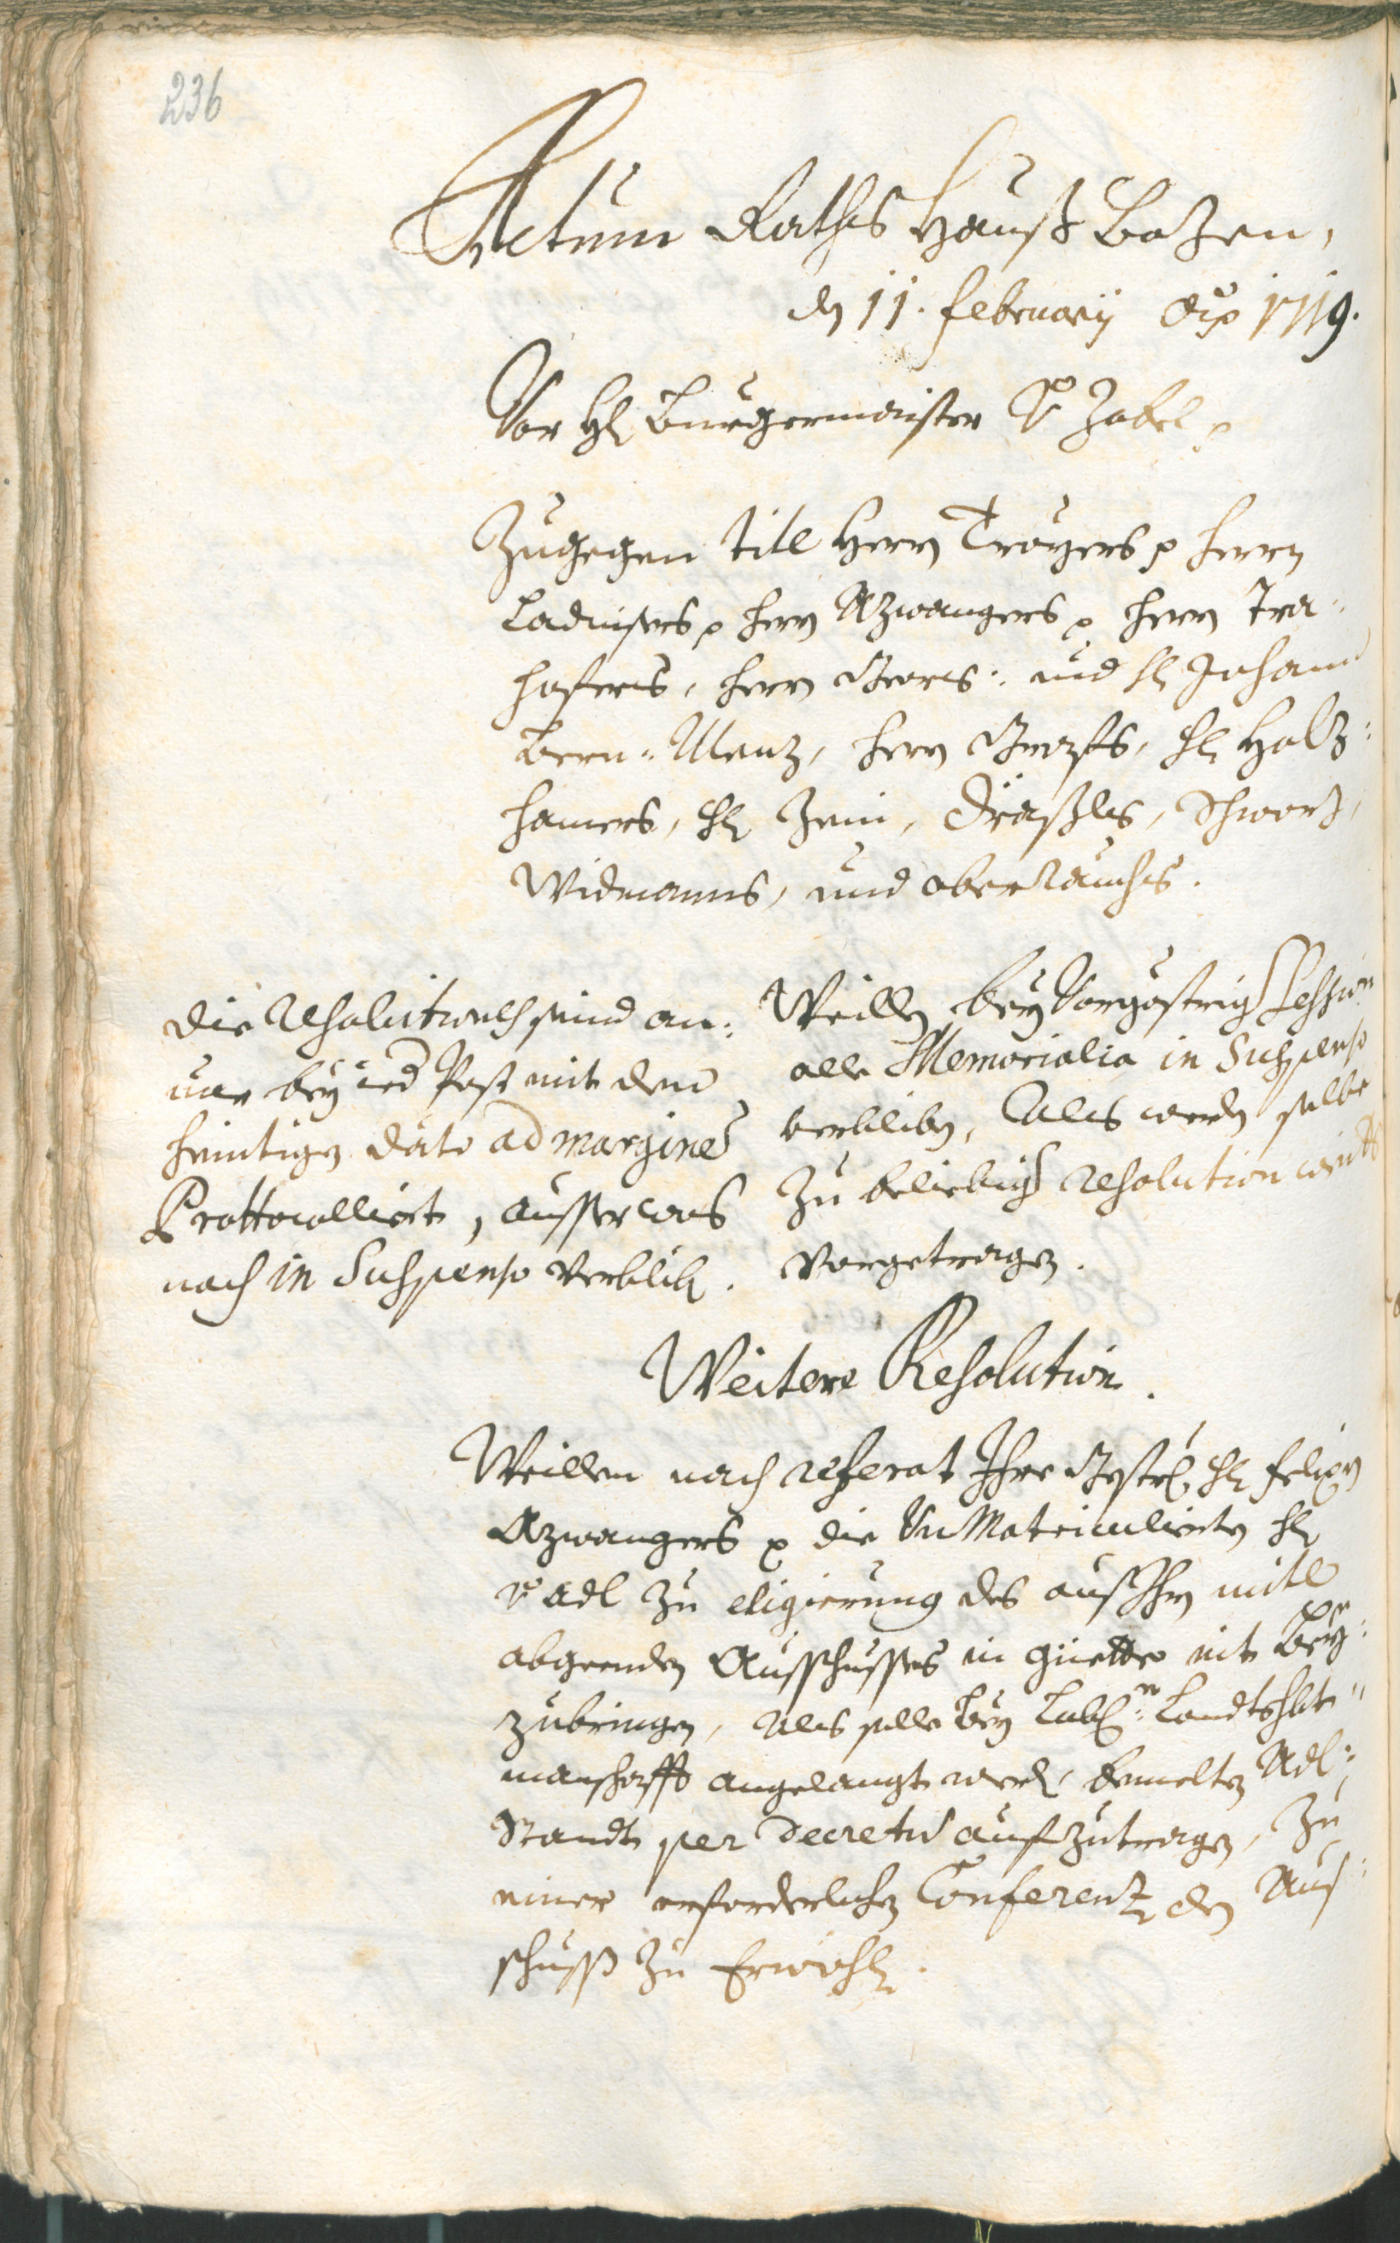 236
Actum Raths Hauß Bozen,
den 11. february Aō 1719.
Vor H: Burgermaister v: Zobel p
Zugegen titl Herrn Troyers p herrn
Ladinsers p herrn Azwangers p herrn Tra-
hofers, herrn Georg: und H: Johann
Bern: Menz, herrn, H: Holz-
hamers, H: Zeni, Schworz,
Widmanns, und oberrauchs.
Die Resolutiones seind an-
vor bey ied Post mit dem
heintigen dato ad margines
Prottocolliert, ausser was
noch in Suspenso verblib.
Weillen bey Vorgöstrig Session
alle Memorialia in Suspenso
verbliben, Als werden selbe
zu beliebig resolution
vorgetragen.
Weitere Resolution.
Weillen nach referat Ihre Gestr: H: felixen
Azwangers p die Unmatriculierten H:
v: adl zu eligierung des auß Ihn mitl
abgeenden Ausschusses in güette nit bey-
zubringen, Als solle bey Lobl: Landtshbt-
manschafft angelangt werd, bemelten Adl-
Standt per Decretum aufzutragen, zu
einer erforderlichen Conferenz den Aus-
schuss zu Erwöhl.